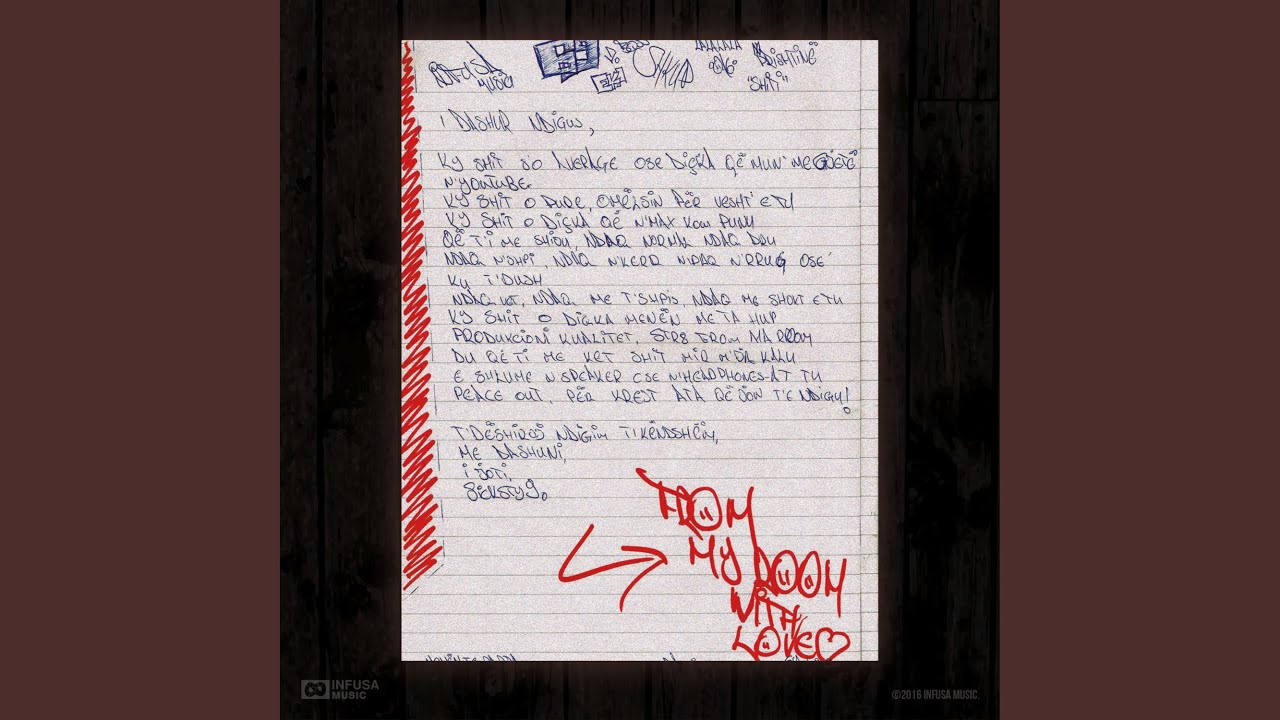 INFUSA MUSIC SHKUP LALALALA 2016 PRISHTINË "SHIT"
I DASHUR NDIGUS,
KY SHIT S'O AVERAGE OSE DIÇKA QË MUN' ME GJETË
N'YOUTUBE.
KY SHIT O PURE, QMËLSIN PËR VESHT' E TU
KY SHIT O DIÇKA QË N'MAX KOM PUNU
QË TI ME SHIJU, NDAQ NORMAL NDAQ DRU
NDAQ N'SHPI, NDAQ N'KERR N'PAQ N'RRUG OSE
KU T'DUSH
NDAQ VET, NDAQ ME T'SHPIS, NDAQ ME SHOKT E TU
KY SHIT O DIÇKA MENËN ME TA HUP
PRODUKCIONI KUALITET, STR8 FROM MA ROOM
DU QË TI ME KET SHIT MIR M'JA KALU
E SHLUME N'SPEAKER OSE N'HEADPHONES-AT TU
PEACE OUT, PËR KREJT ATA QË JON T'E NDIGJU!
T'DËSHIROJ NDIGIM T'KËNDSHËM,
ME DASHUNI,
I JOTI,
FROM
MY ROOM
WITH
LOVE
INFUSA
MUSIC
©2016 INFUSA MUSIC.